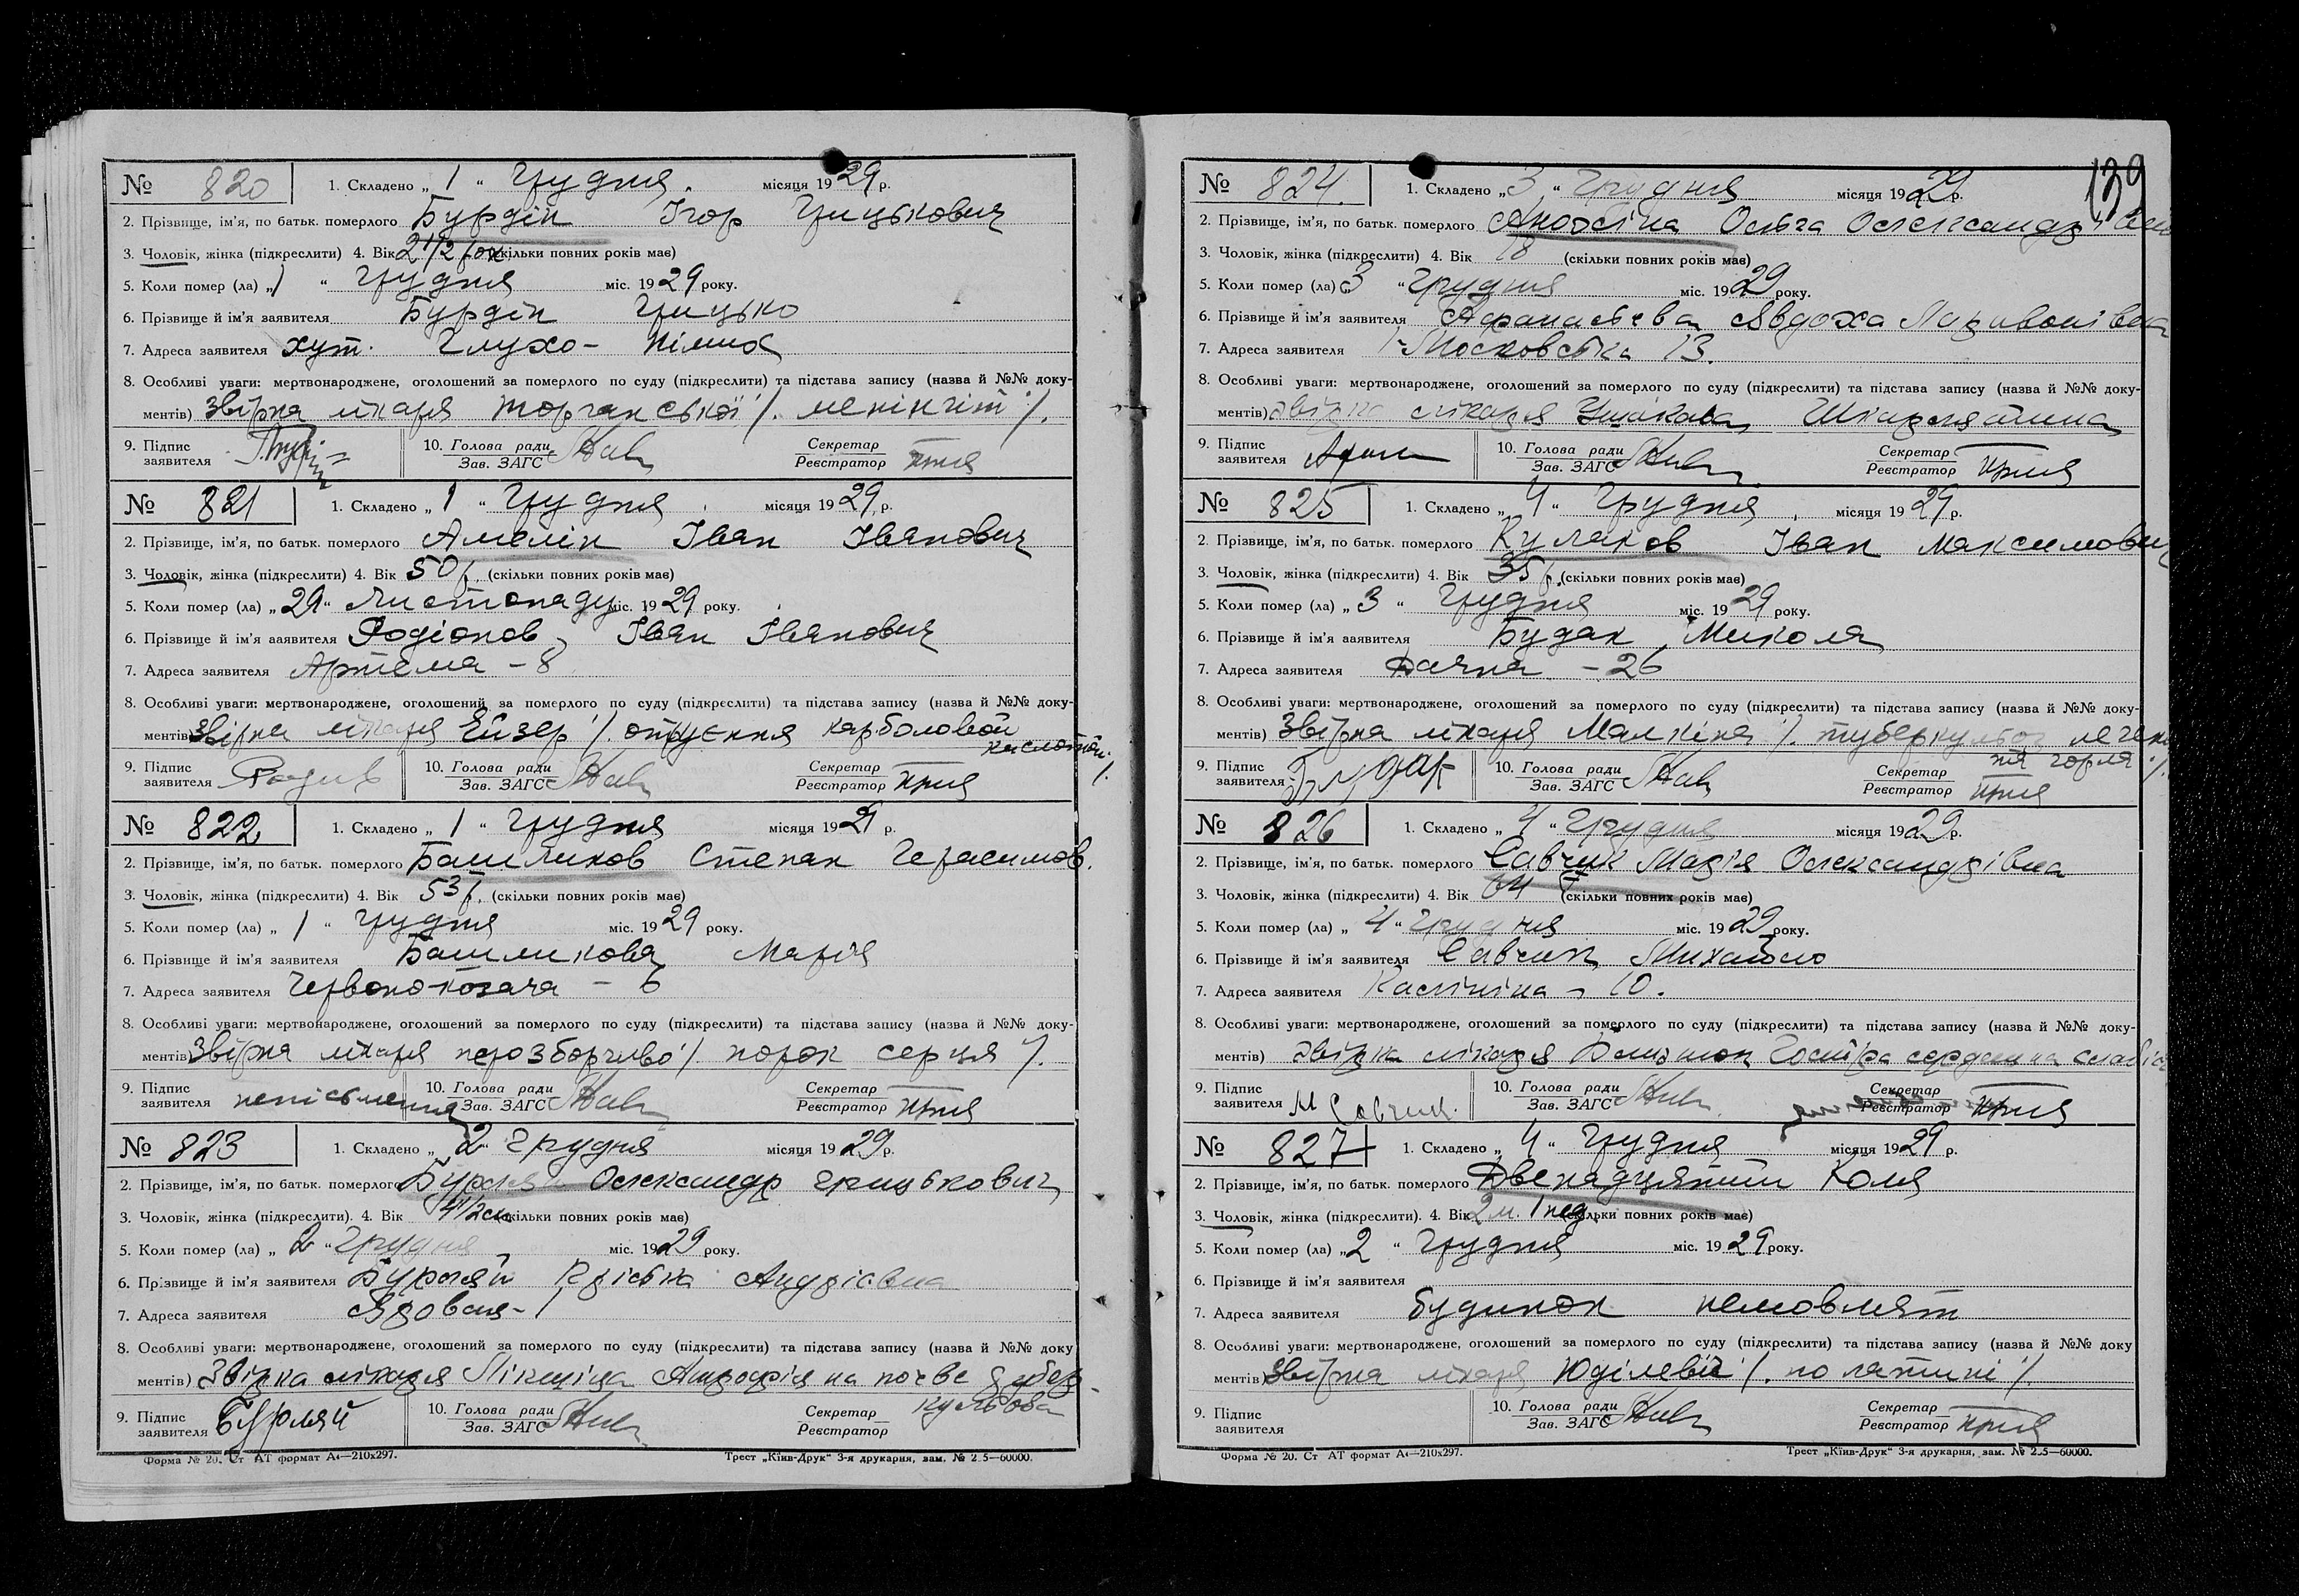 № 820 1. Складено „ 1 “ Грудня. місяця 1929 р.
2. Прізвище, ім'я, по батьк. померлого Бурдін Ігор Грицькович
3. Чоловік, жінка (підкреслити) 4. Вік 2 1/2 рок (скільки повних років має)
5. Коли помер (ла) „ 1 “ Грудня міс. 1929 року.
6. Прізвище й ім'я заявителя Бурдін Грицько
7. Адреса заявителя хут. Глухо-
8. Особливі уваги: мертвонароджене, оголошений за померлого по суду (підкреслити) та підстава запису (назва й №№ доку-
ментів) Звірка лікаря менінгіт ./.
9. Підпис заявителя 10. Голова ради Зав. ЗАГС Секретар Реєстратор
№ 821 1. Складено „ 1 “ Грудня. місяця 1929 р.
2. Прізвище, ім'я, по батьк. померлого Амелін Іван Іванович
3. Чоловік, жінка (підкреслити) 4. Вік 50 р. (скільки повних років має)
5. Коли помер (ла) „ 29 “ Листопаду міс. 1929 року.
6. Прізвище й ім'я заявителя Родіонов Іван Іванович
7. Адреса заявителя Артема - 8
8. Особливі уваги: мертвонароджене, оголошений за померлого по суду (підкреслити) та підстава запису (назва й №№ доку-
ментів) Звірка лікаря Ейзер ./. отруєння карболовой
кислотой ./.
9. Підпис заявителя 10. Голова ради Зав. ЗАГС Секретар Реєстратор
№ 822 1. Складено „ 1 “ Грудня місяця 1929 р.
2. Прізвище, ім'я, по батьк. померлого Башликов Степан Герасимов.
3. Чоловік, жінка (підкреслити) 4. Вік 53 р. (скільки повних років має)
5. Коли помер (ла) „ 1 “ Грудня міс. 1929 року.
6. Прізвище й ім'я заявителя Башликова Марія
7. Адреса заявителя Червоно-козача - 6
8. Особливі уваги: мертвонароджене, оголошений за померлого по суду (підкреслити) та підстава запису (назва й №№ доку-
ментів) Звірка лікаря нерозборчиво ./. порок серця ./.
9. Підпис заявителя неписьменна 10. Голова ради Зав. ЗАГС Секретар Реєстратор
№ 823 1. Складено „ 2 “ Грудня місяця 1929 р.
2. Прізвище, ім'я, по батьк. померлого Бурляй Олександр Грицькович
3. Чоловік, жінка (підкреслити). 4. Вік 4 1/2 (скільки повних років має)
5. Коли помер (ла) „ 2 “ Грудня міс. 1929 року.
6. Прізвище й ім'я заявителя Бурляй Андріївна
7. Адреса заявителя - 1
8. Особливі уваги: мертвонароджене, оголошений за померлого по суду (підкреслити) та підстава запису (назва й №№ доку
ментів) Звірка лікаря Атрофія на почве тубер-
кульоза
9. Підпис заявителя Бурляй 10. Голова ради Зав. ЗАГС Секретар Реєстратор
Форма № 20. Ст АТ формат А4—210х297. Трест „Київ-Друк“ 3-я друкарня, зам. № 2 5—60000.
139
№ 824. 1. Складено „ 3 “ Грудня місяця 1929 р.
2. Прізвище, ім'я, по батьк. померлого Ольга Олександрівна
3. Чоловік, жінка (підкреслити) 4. Вік 18 (скільки повних років має)
5. Коли помер (ла) 3 “ Грудня міс. 1929 року.
6. Прізвище й ім'я заявителя Афанасьєва Явдоха
7. Адреса заявителя 1-Московська 13.
8. Особливі уваги: мертвонароджене, оголошений за померлого по суду (підкреслити) та підстава запису (назва й №№ доку-
ментів) Звірка лікаря Ушакова Шкарлятина
9. Підпис заявителя 10. Голова ради Зав. ЗАГС Секретар Реєстратор
№ 825 1. Складено „ 4 “ Грудня місяця 1929 р.
2. Прізвище, ім'я, по батьк. померлого Кулаков Іван Максимович
3. Чоловік, жінка (підкреслити) 4. Вік 35 р. (скільки повних років має)
5. Коли помер (ла) „ 3 “ Грудня міс. 1929 року.
6. Прізвище й ім'я заявителя Будак Микола
7. Адреса заявителя Дачна - 26
8. Особливі уваги: мертвонароджене, оголошений за померлого по суду (підкреслити) та підстава запису (назва й №№ доку-
ментів) Звірка лікаря Малкіна ./. туберкульоз легень
та горля ./.
9. Підпис заявителя Будак 10. Голова ради Зав. ЗАГС Секретар Реєстратор
№ 826 1. Складено „ 4 “ Грудня місяця 1929 р.
2. Прізвище, ім'я, по батьк. померлого Савчук Марія Олександрівна
3. Чоловік, жінка (підкреслити) 4. Вік 64 (скільки повних років має)
5. Коли помер (ла) „ 4 “ Грудня міс. 1929 року.
6. Прізвище й ім'я заявителя Савчук Михайло
7. Адреса заявителя Калініна - 10.
8. Особливі уваги: мертвонароджене, оголошений за померлого по суду (підкреслити) та підстава запису (назва й №№ доку-
ментів) Звірка лікаря Гостра сердешна
9. Підпис заявителя М Савчук. 10. Голова ради Зав. ЗАГС Секретар Реєстратор
№ 827 1. Складено „ 4 “ Грудня місяця 1929 р.
2. Прізвище, ім'я, по батьк. померлого Двенадцятий Коля
3. Чоловік, жінка (підкреслити). 4. Вік 2 м. 1 нед (скільки повних років має)
5. Коли помер (ла) „ 2 “ Грудня міс. 1929 року.
6. Прізвище й ім'я заявителя
7. Адреса заявителя будинок немовлят
8. Особливі уваги: мертвонароджене, оголошений за померлого по суду (підкреслити) та підстава запису (назва й №№ доку
ментів) Звірка лікаря Юділевіч ./. по латині ./.
9. Підпис заявителя 10. Голова ради Зав. ЗАГС Секретар Реєстратор
Форма № 20. Ст АТ формат А4—210х297. Трест „Київ-Друк“ 3-я друкарня, зам. № 2.5—60000.